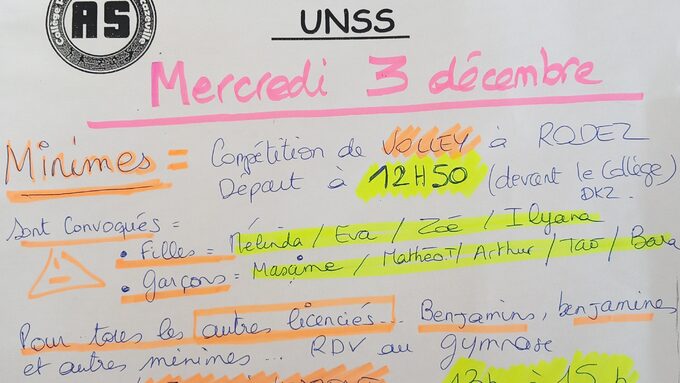 AS
UNSS
Mercredi 3 décembre
Minimes = Compétition de VOLLEY à RODEZ
Départ à 12H50 (devant le Collège)
DKZ.
Sont Convoqués =
• Filles = Mélinda / Eva / Zoé / Ilyana
• Garçons = Maxime / Mathéo.T / Arthur / Tao / Bara
Pour tous les autres licenciés... Benjamins, benjamines
et autres minimes... RDV au gymnase
13h à 15h